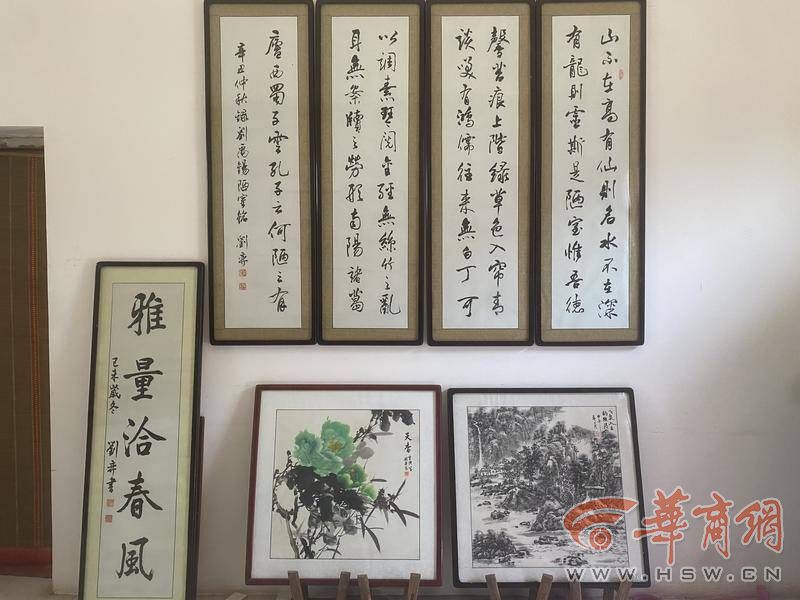 山不在高有仙則名水不在深
有龍則靈斯是陋室惟吾德
馨苔痕上階綠草色入帘青
談笑有鴻儒往來無白丁可
以調素琴閱金經無絲竹之亂
耳無案牘之勞形南陽諸葛
廬西蜀子雲孔子云何陋之有
辛丑仲秋録劉禹錫陋室銘 劉弈
雅量洽春風
己未歲冬 劉弈書
天香
華商網
WWW.HSW.CN